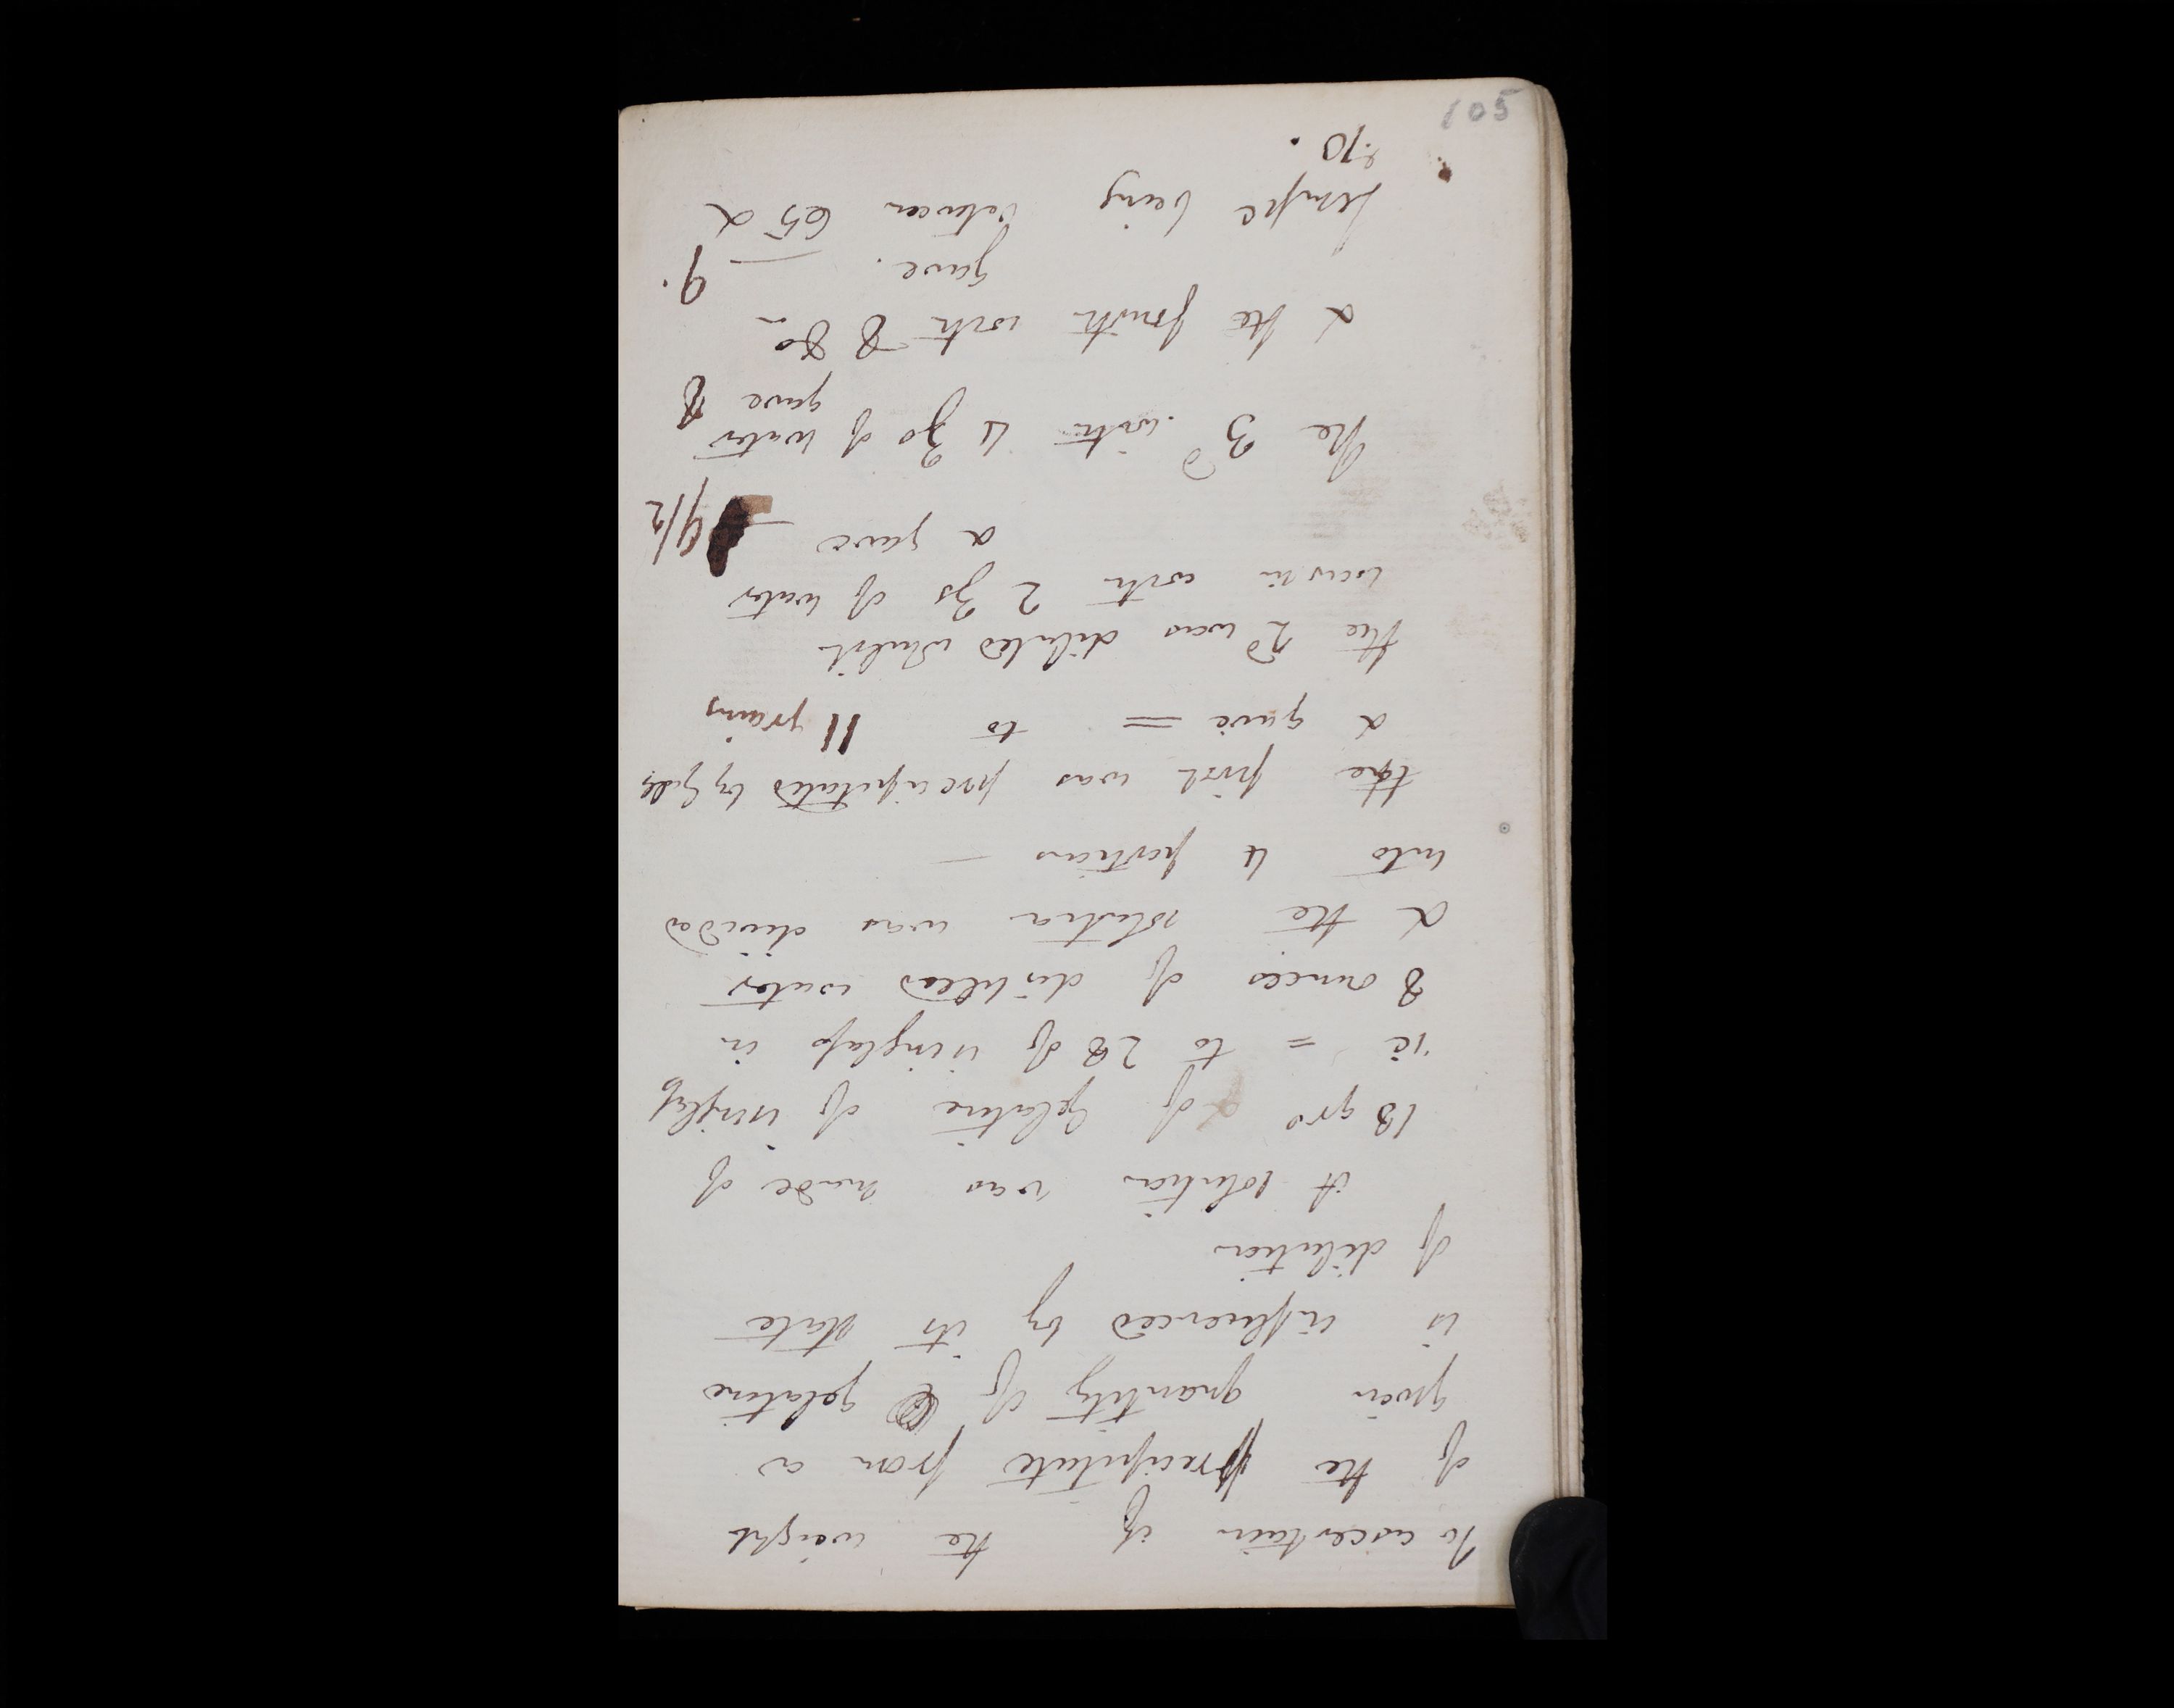 To ascertain if the weight
of the precipitate from a
given quantity of gelatine
is influenced by its state
of dilution
A solution was made of
18 grs of Gelatine of isinglass
ie = to 28 of isinglass in
8 ounces of distilled water
& the solution was divided
into 4 portions —
the first was precipitated by galls
& gave = to 11 grains
the 2d was diluted whilst
warm with 2 ℥s of water
& gave — 9/2
The 3d with 4 ℥s of water
gave 8
& the fourth with 8 ℥s
gave. — 9.
tempe being between 65 &
70.
105